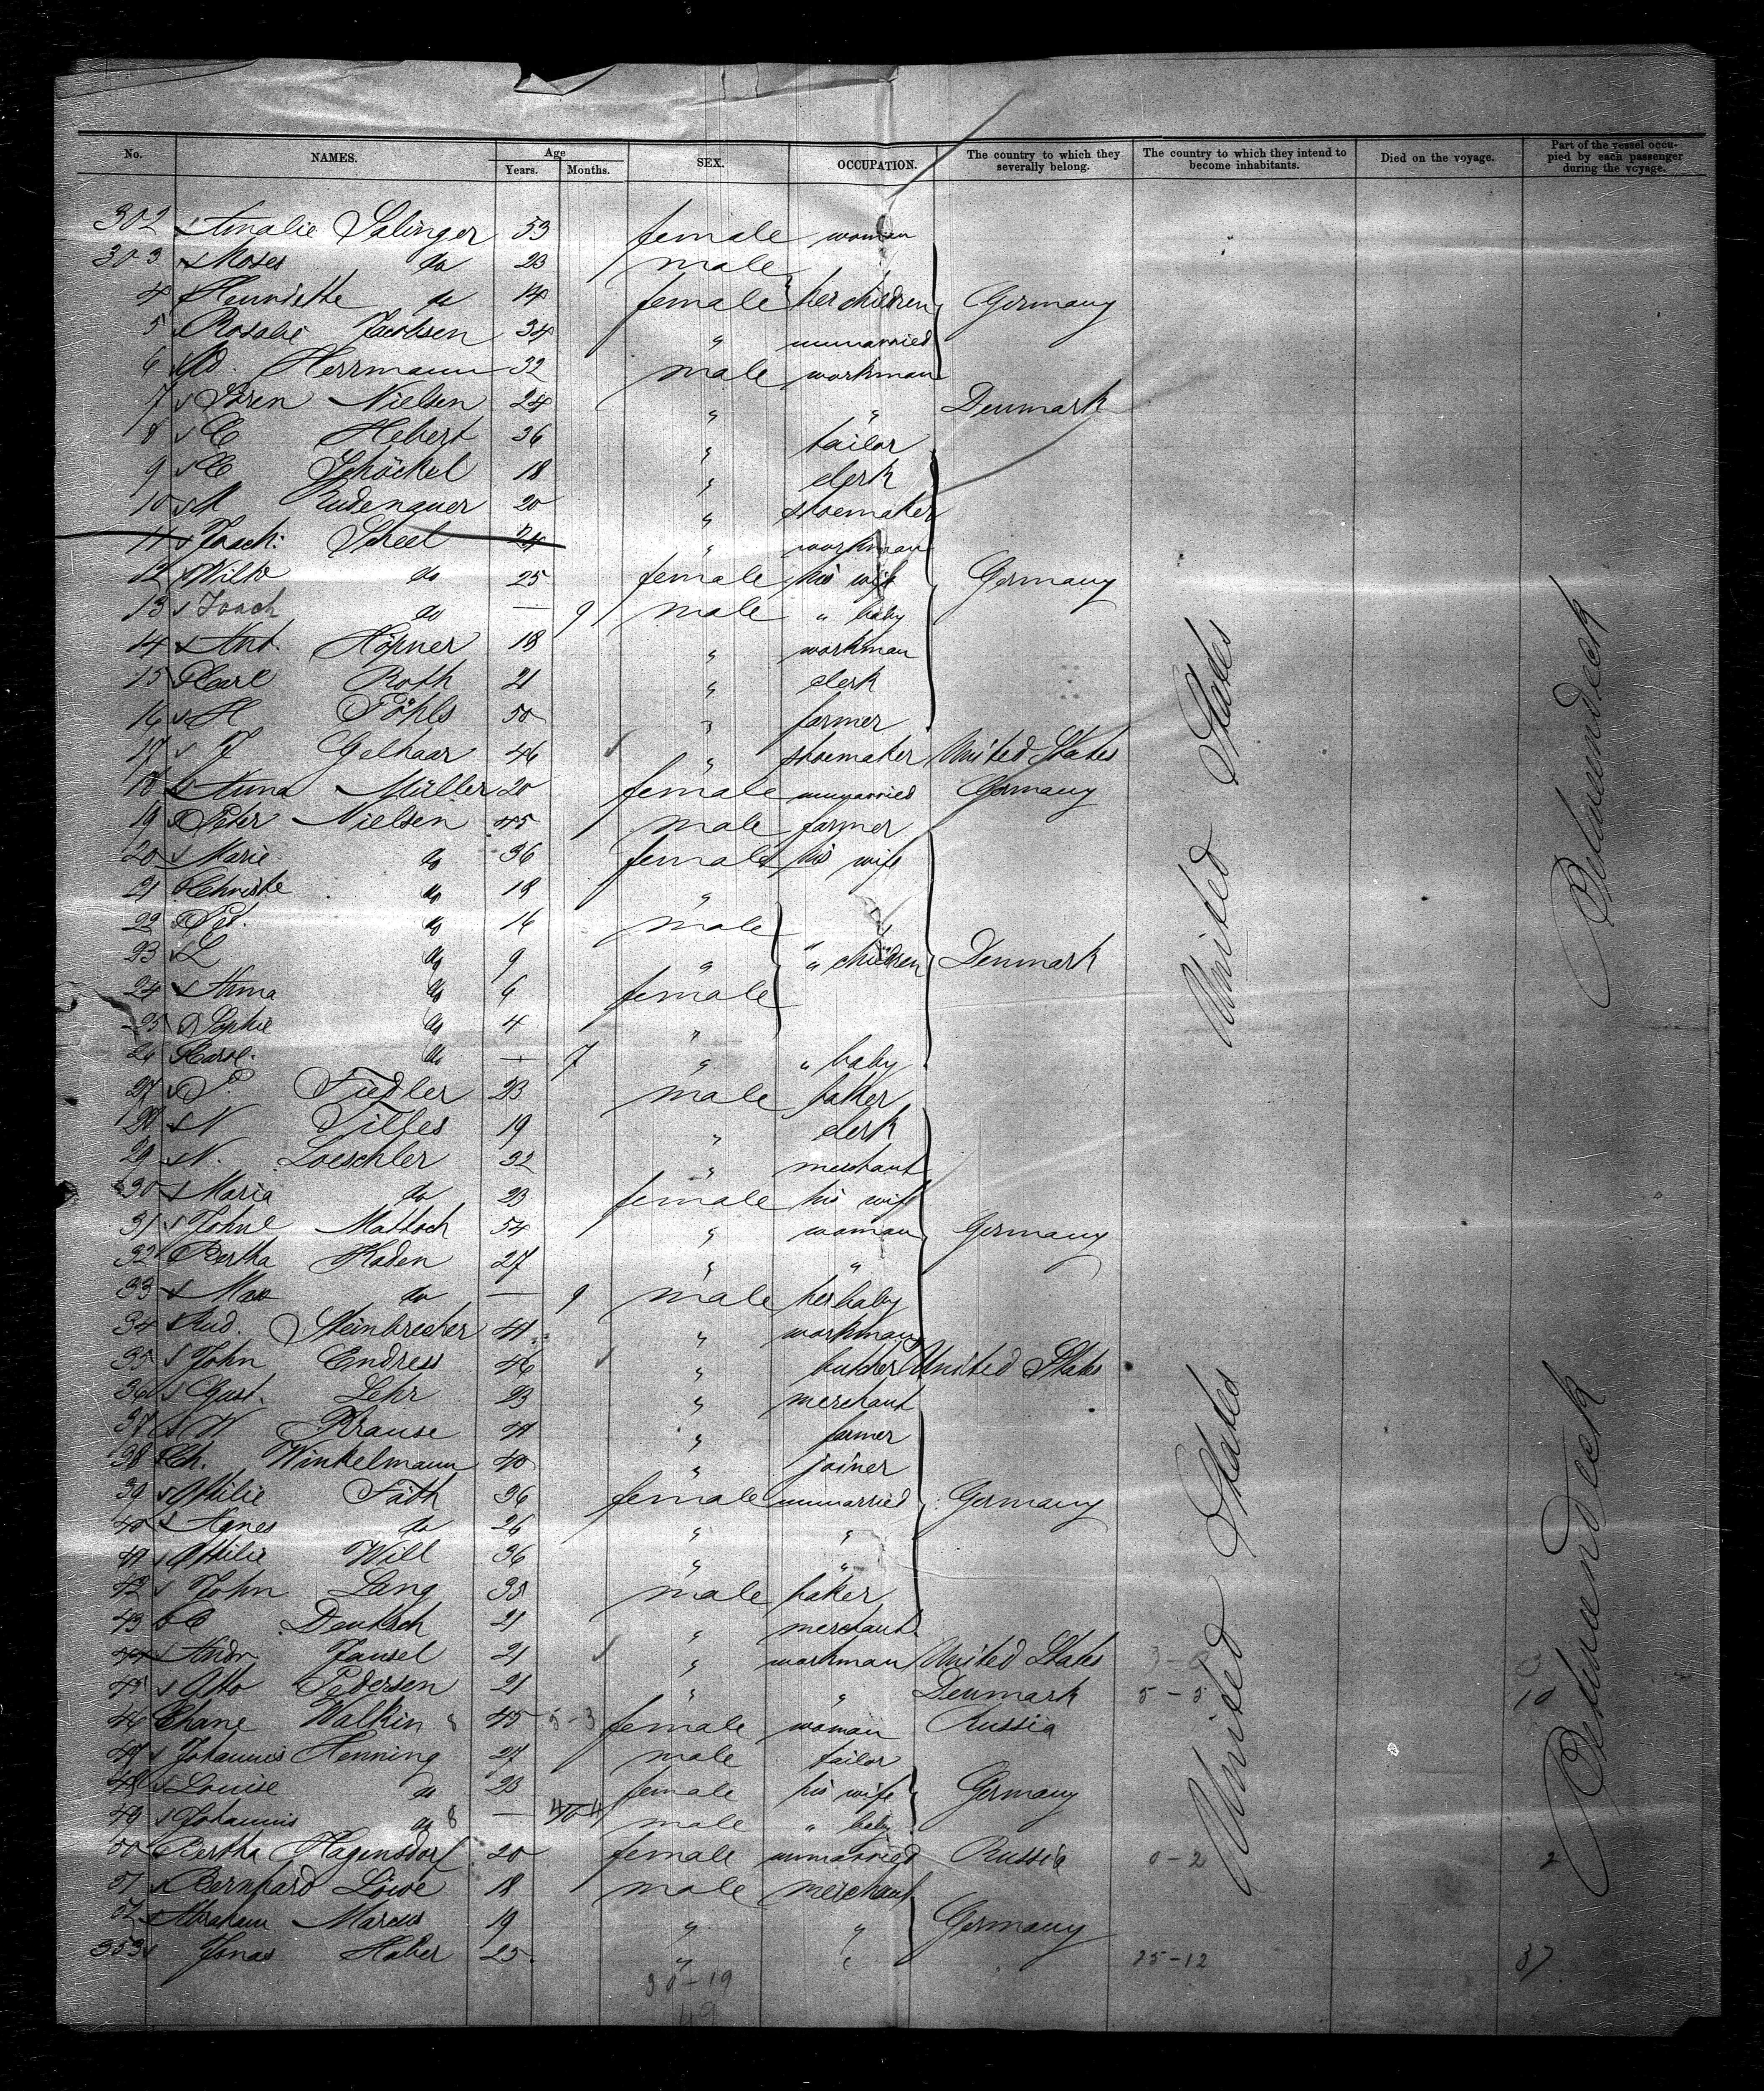 No. NAMES. Age Years. Months. SEX. OCCUPATION. The country to which they severally belong. The country to which they intend to become inhabitants. Died on the voyage. Part of the vessel occupied by each passenger during the voyage.
302 Amalie Salinger 53 female woman
303 Moses do 23 male
4 Henriette do 14 female her children Germany
5 Rosalie Jacobsen 34 " unmarried
6 Ad. Herrmann 32 male workman
7 Sören Nielsen 24 " " Denmark
8 C Hebert 36 " tailor
9 C Schöckel 18 " clerk
10 M Rudenauer 20 " shoemaker
11 Joach: Scheel 24 " workman
12 Wilh do 25 female his wife Germany
13 Joach do — 9 male " baby
14 Ant. Höpner 18 " workman
15 Carl Roth 21 " clerk
16 H Pöhls 50 " farmer
17 F Gelhaar 46 " shoemaker United States
18 Anna Müller 20 female unmarried Germany
19 Peter Nielsen 45 male farmer
20 Marie do 36 female his wife
21 Christe do 18 "
22 Pet. do 16 male "
23 L do 9 " " children Denmark
24 Anna do 6 female
25 Sophie do 4 "
26 Karol. do — 7 " " baby
27 P. Fiedler 23 male baker
28 N Tilles 19 " clerk
29 N. Loeschler 32 " merchant
30 Maria do 23 female his wife
31 Johne Mattoch 54 " woman Germany
32 Bertha Kaden 27 " "
33 Max do — 9 male her baby
34 Rud. Steinbrecher 41 " workman
35 John Endress 46 " butcher United States
36 Gust. Lehr 23 " merchant
37 W Krause 41 " farmer
38 Ch. Winkelmann 40 " joiner
39 Ottilie Fäth 36 female unmarried Germany
40 Agnes do 26 " "
41 Ottilie Will 36 " "
42 John Lang 35 male baker
43 C Deutsch 21 " merchant
44 Andr Jansel 21 " workman United States 3-0 3
45 Otto Pedersen 21 " " Denmark 5-5 10
46 Chane Walkin 8 45 5-3 female woman Russia
47 Johannis Henning 27 male tailor
48 Louise do 23 female his wife Germany
49 Johannis do 8 — male " baby
50 Bertha Hagensdorf 20 female unmarried Russia 0-2 2
51 Bernhard Löwe 18 male merchant
52 Abraham Marcus 19 " " Germany
353 Jonas Haber 25 " " 25-12 37
30-19
49
United States
Betweendeck
United States
Betweendeck